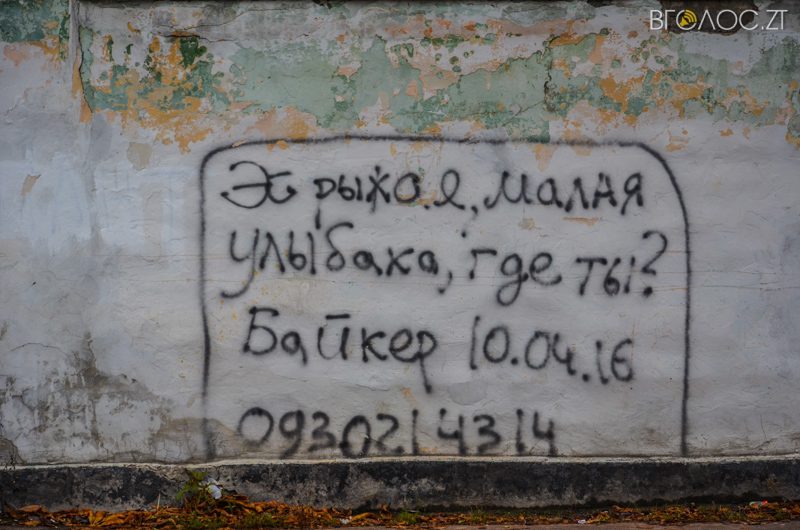 ВГОЛОС.ZT
Эх рыжая, малая
улыбака, где ты?
Байкер 10.04.16
0930214314